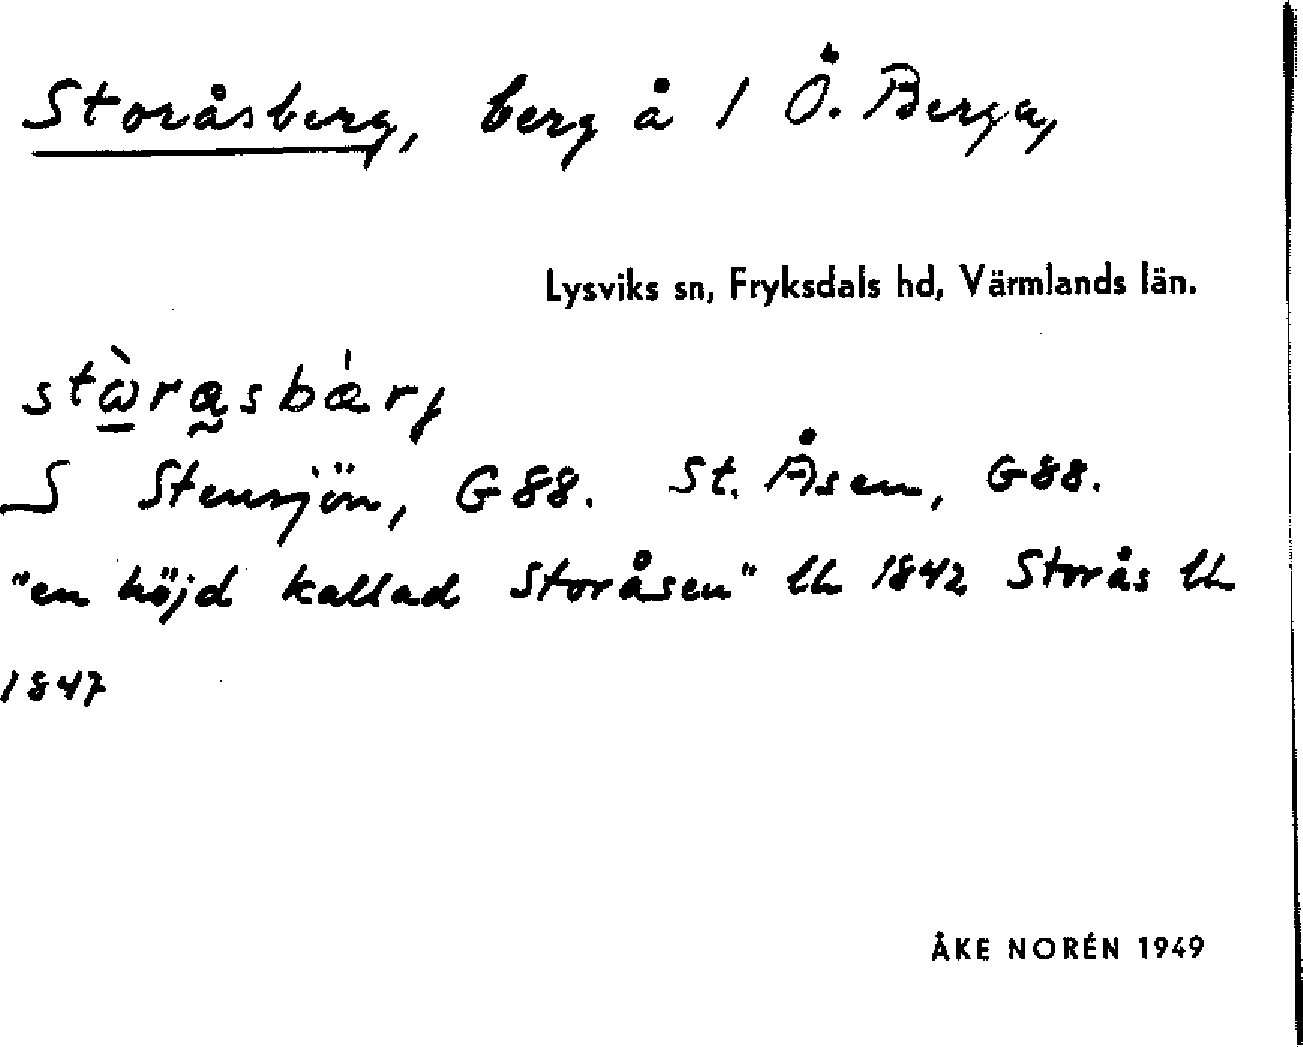 Storåsberg, berg å 1 Ö. Berga,
Lysviks sn, Fryksdals hd, Värmlands län.
S Stensjön, G88. St. Åsen, G88.
"en höjd kallad Storåsen" Lh 1842 Storås Lh
1847
ÅKE NORÉN 1949